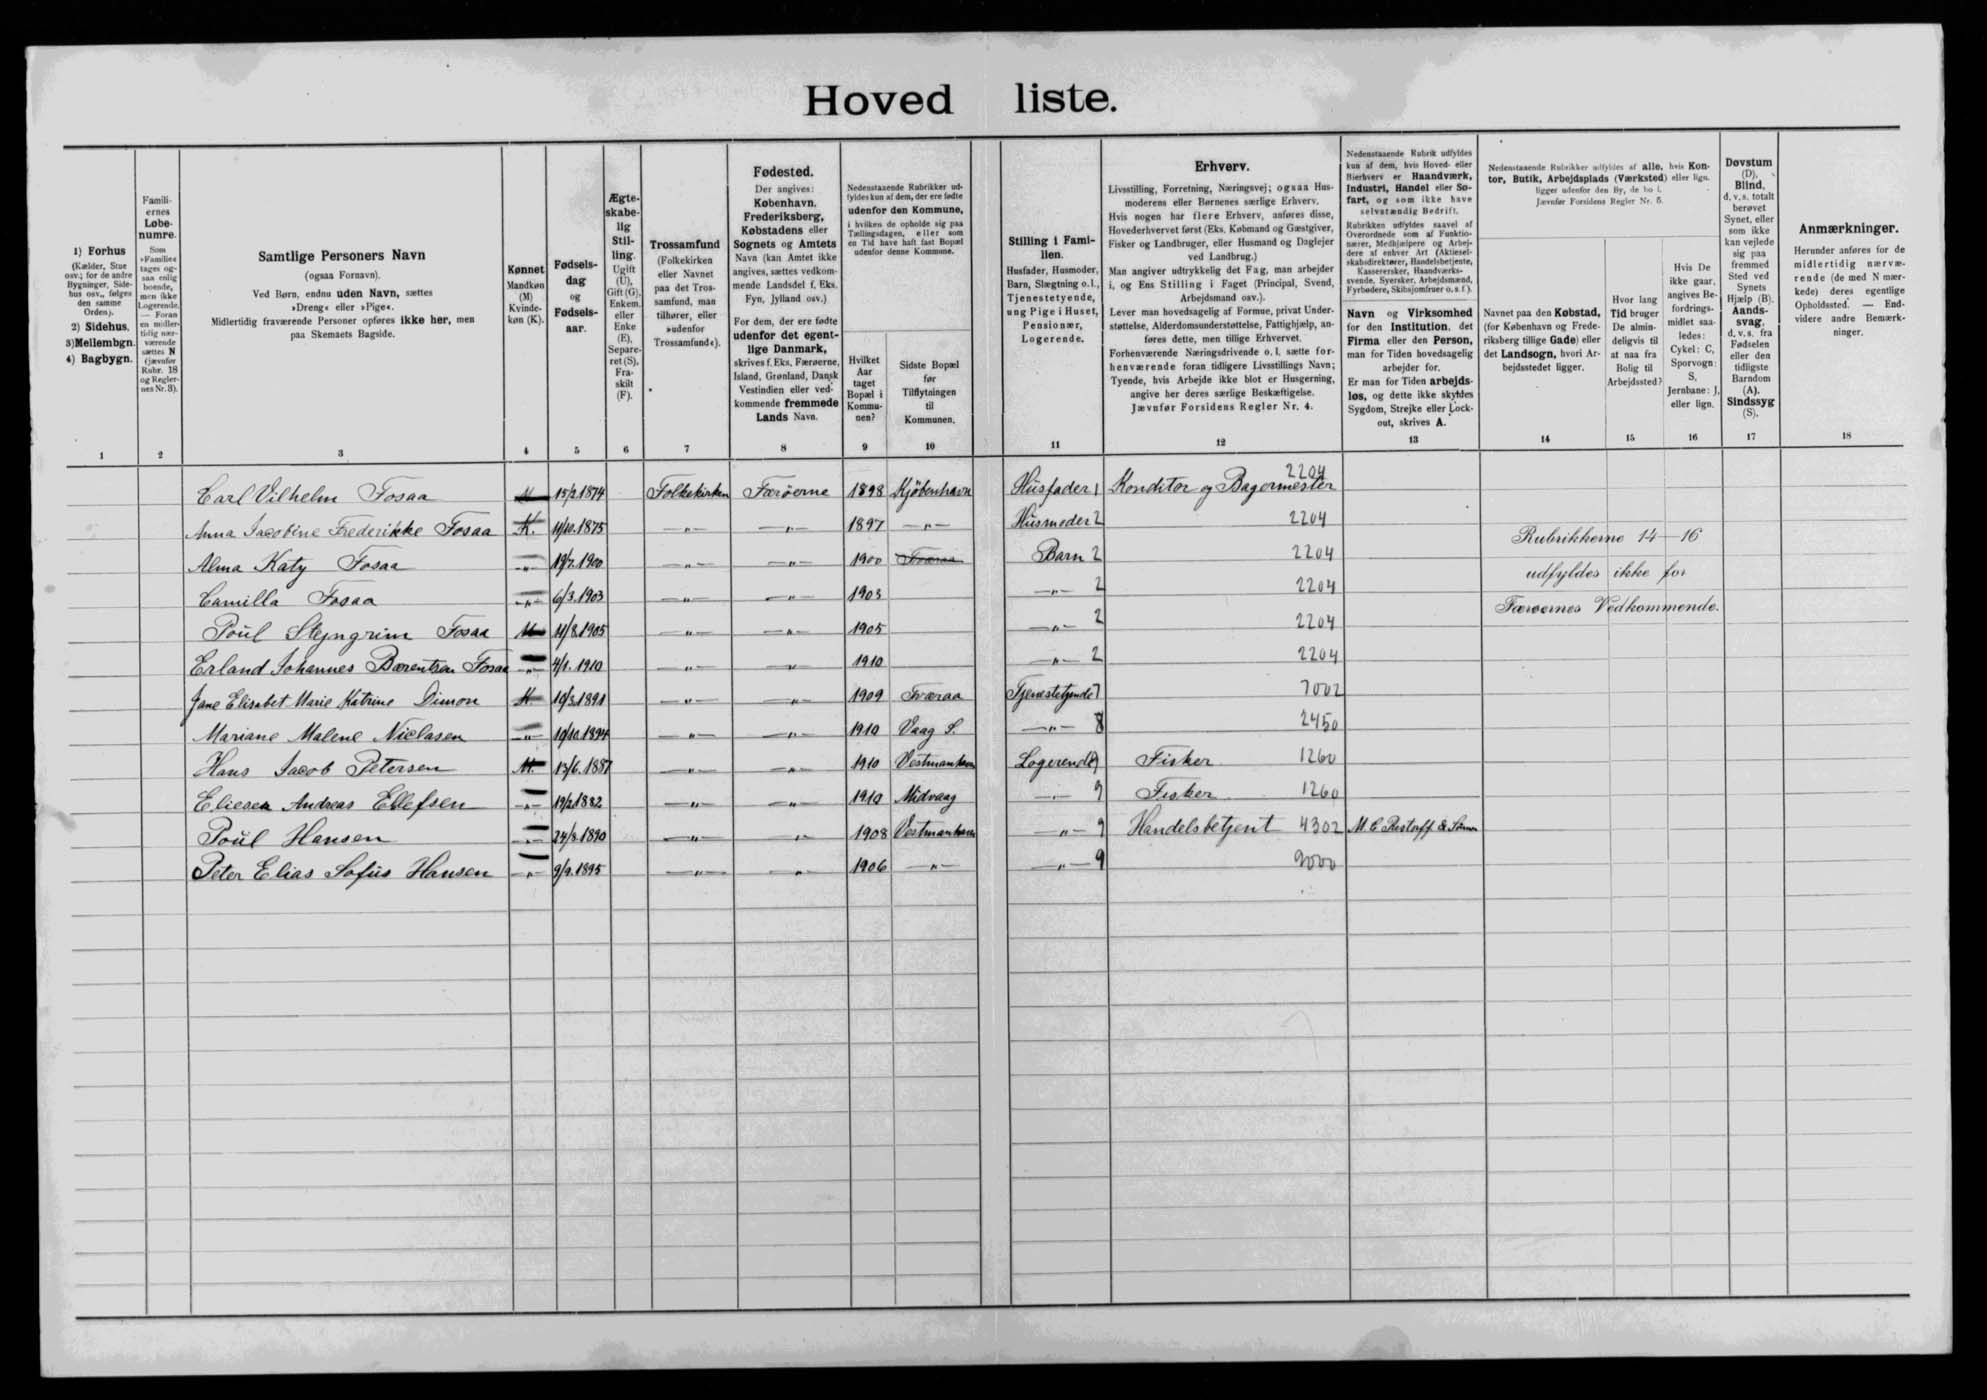 Hoved liste.
1) Forhus
(Kælder, Stue
osv.; for de andre
Bygninger, Side-
hus osv., følges
den samme
Orden).
2) Sidehus.
3) Mellembgn.
4) Bagbygn.
1
Famili-
ernes
Løbe-
numre.
Som
»Familie«
tages og-
saa enlig
boende,
men ikke
Logerende.
— Foran
en midler-
tidig nær-
værende
sættes N
(jævnfør
Rubr. 18
og Regler-
nes Nr. 3).
2
Samtlige Personers Navn
(ogsaa Fornavn).
Ved Børn, endnu uden Navn, sættes
»Dreng« eller »Pige«.
Midlertidig fraværende Personer opføres ikke her, men
paa Skemaets Bagside.
3
Kønnet
Mandkøn
(M)
Kvinde-
køn (K).
4
Fødsels-
dag
og
Fødsels-
aar.
5
Ægte-
skabe-
lig
Stil-
ling.
Ugift
(U),
Gift (G),
Enkem.
eller
Enke
(E),
Separe-
ret (S),
Fra-
skilt
(F).
6
Trossamfund
(Folkekirken
eller Navnet
paa det Tros-
samfund, man
tilhører, eller
»udenfor
Trossamfund«).
7
Fødested.
Der angives:
København,
Frederiksberg,
Købstadens eller
Sognets og Amtets
Navn (kan Amtet ikke
angives, sættes vedkom-
mende Landsdel f. Eks.
Fyn, Jylland osv.)
For dem, der ere fødte
udenfor det egent-
lige Danmark,
skrives f. Eks. Færøerne,
Island, Grønland, Dansk
Vestindien eller ved-
kommende fremmede
Lands Navn.
8
Nedenstaaende Rubrikker ud-
fyldes kun af dem, der ere fødte
udenfor den Kommune,
i hvilken de opholde sig paa
Tællingsdagen, eller som
en Tid have haft fast Bopæl
udenfor denne Kommune.
Hvilket
Aar
taget
Bopæl i
Kommu-
nen?
9
Sidste Bopæl
før
Tilflytningen
til
Kommunen.
10
Stilling i Fami-
lien.
Husfader, Husmoder,
Barn, Slægtning o. l.,
Tjenestetyende,
ung Pige i Huset,
Pensionær,
Logerende.
11
Erhverv.
Livsstilling, Forretning, Næringsvej; ogsaa Hus-
moderens eller Børnenes særlige Erhverv.
Hvis nogen har flere Erhverv, anføres disse,
Hovederhvervet først (Eks. Købmand og Gæstgiver,
Fisker og Landbruger, eller Husmand og Daglejer
ved Landbrug.)
Man angiver udtrykkelig det Fag, man arbejder
i, og Ens Stilling i Faget (Principal, Svend,
Arbejdsmand osv.).
Lever man hovedsagelig af Formue, privat Under-
støttelse, Alderdomsunderstøttelse, Fattighjælp, an-
føres dette, men tillige Erhvervet.
Forhenværende Næringsdrivende o. l. sætte for-
henværende foran tidligere Livsstillings Navn;
Tyende, hvis Arbejde ikke blot er Husgerning,
angive her deres særlige Beskæftigelse.
Jævnfør Forsidens Regler Nr. 4.
12
Nedenstaaende Rubrik udfyldes
kun af dem, hvis Hoved- eller
Bierhverv er Haandværk,
Industri, Handel eller Sø-
fart, og som ikke have
selvstændig Bedrift.
Rubrikken udfyldes saavel af
Overordnede som af Funktio-
nærer, Medhjælpere og Arbej-
dere af enhver Art (Aktiesel-
skabsdirektører, Handelsbetjente,
Kasserersker, Haandværks-
svende, Syersker, Arbejdsmænd,
Fyrbødere, Skibsjomfruer o. s. f.).
Navn og Virksomhed
for den Institution, det
Firma eller den Person,
man for Tiden hovedsagelig
arbejder for.
Er man for Tiden arbejds-
løs, og dette ikke skyldes
Sygdom, Strejke eller Lock-
out, skrives A.
13
Nedenstaaende Rubrikker udfyldes af alle, hvis Kon-
tor, Butik, Arbejdsplads (Værksted) eller lign.
ligger udenfor den By, de bo i.
Jævnfør Forsidens Regler Nr. 5.
Navnet paa den Købstad,
(for København og Frede-
riksberg tillige Gade) eller
det Landsogn, hvori Ar-
bejdsstedet ligger.
14
Hvor lang
Tid bruger
De almin-
deligvis til
at naa fra
Bolig til
Arbejdssted?
15
Hvis De
ikke gaar,
angives Be-
fordrings-
midlet saa-
ledes:
Cykel: C,
Sporvogn:
S,
Jernbane: J,
eller lign.
16
Døvstum
(D),
Blind,
d. v. s. totalt
berøvet
Synet, eller
som ikke
kan vejlede
sig paa
fremmed
Sted ved
Synets
Hjælp (B).
Aands-
svag,
d. v. s. fra
Fødselen
eller den
tidligste
Barndom
(A).
Sindssyg
(S).
17
Anmærkninger.
Herunder anføres for de
midlertidig nærvæ-
rende (de med N mær-
kede) deres egentlige
Opholdssted. — End-
videre andre Bemærk-
ninger.
18
Carl Vilhelm Fosaa M 15/2 1874 Folkekirken Færøerne 1898 Kjøbenhavn Husfader 1 Konditor og Bagermester 2204
Anna Jacobine Frederikke Fosaa K. 11/10. 1875 —„— —„— 1897 —„— Husmoder 2 2204
Alma Katy Fosaa —„— 19/7. 1900 —„— —„— 1900 Tværaa Barn 2 2204
Camilla Fosaa —„— 6/3. 1903 —„— —„— 1903 —„— 2 2204
Poul Stejngrim Fosaa M 11/8. 1905 —„— —„— 1905 —„— 2 2204
Erland Johannes Bærentsen Fosaa —„— 4/1. 1910 —„— —„— 1910 —„— 2 2204
Jane Elisabet Marie Katrine Dimon K 10/3. 1891 —„— —„— 1909 Tværaa Tjenestetyende 7 7002
Mariane Malene Niclasen —„— 10/10. 1894 —„— —„— 1910 Vaag S. —„— 8 2450
Hans Jacob Petersen M. 13/6. 1887 —„— —„— 1910 Vestmanhavn Logerende 9 Fisker 1260
Eliesen Andreas Ellefsen —„— 19/2 1882 —„— —„— 1910 Midvaag —„— 9 Fisker 1260
Poul Hansen —„— 24/8. 1890 —„— —„— 1908 Vestmanhavn —„— 9 Handelsbetjent 4302 M. C. Restorff & Sønner
Peter Elias Sofus Hansen —„— 9/9. 1895 —„— —„— 1906 „— —„— 9 9000
Rubrikkerne 14—16
udfyldes ikke for
Færøernes Vedkommende.